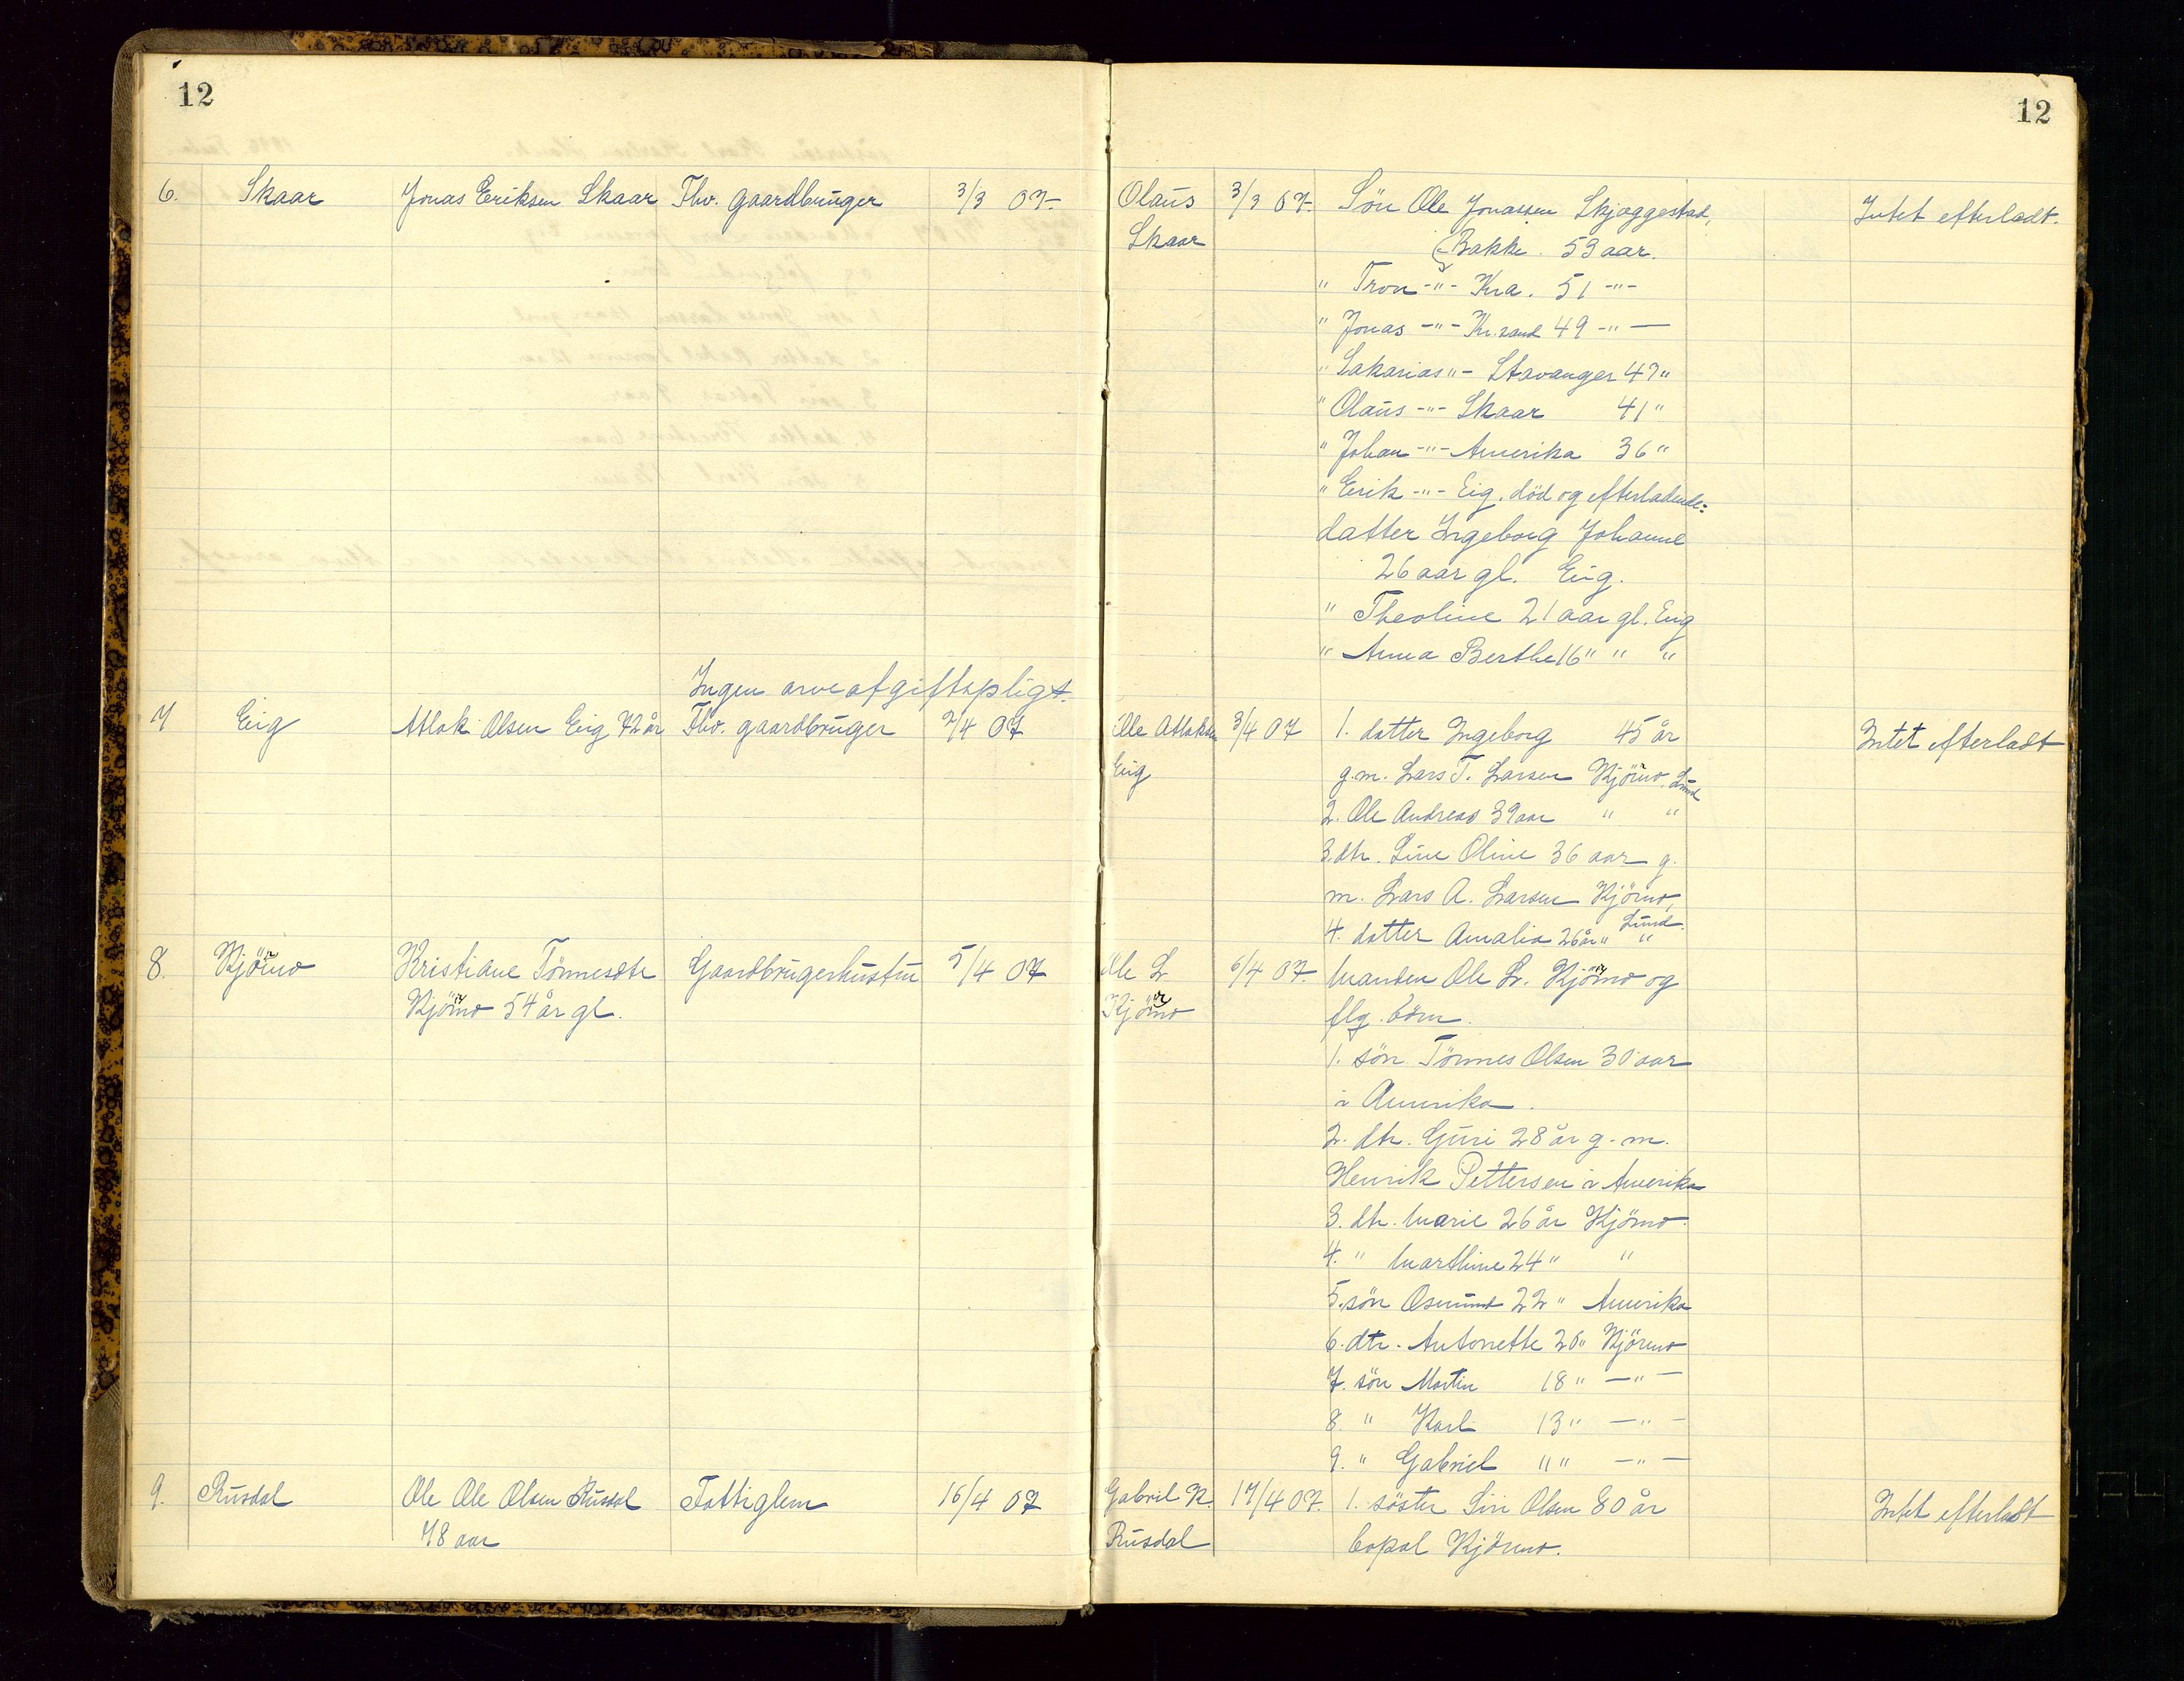 12
12
6. Skaar Jonas Eriksen Skaar Fhv. gaardbruger 3/3 07. Olaus 3/3 07. Sön Ole Jonassen Skjæggestad, Intet efterladt.
Skaar Bakke. 53 aar.
" Tron -"- Kra. 51 -"-
" Jonas -"- Kr.sand 49 -"-
" Sakarias "- Stavanger 47 "
" Olaus -"- Skaar 41 "
" Johan -"- Amerika 36 "
" Erik -"- Eig. död og efterladende:
datter Ingeborg Johanne
26 aar gl. Eig.
" Theoline 21 aar gl. Eig
" Anna Berthe 16 " " "
Ingen arveafgiftspligt.
7 Eig Atlak Olsen Eig 72 år Fhv. gaardbruger 2/4 07 Ole Atlaksen 3/4 07 1. datter Ingeborg 45 år Intet efterladt
Eig g.m. Lars T. Larsen Kjörmo, Lund
2. Ole Andreas 39 aar " "
3. dtr. Sine Oline 36 aar g.
m. Lars A. Larsen Kjörmo,
Lund.
4. datter Amalia 26 år " "
8. Kjörmo Kristiane Tönnesdtr Gaardbrugerhustru 5/4 07 Ole L 6/4 07. Manden Ole L. Kjörmo og
Kjörmo 54 år gl. Kjörmo flg. börn.
1. sön Tönnes Olsen 30 aar
i Amerika.
2. dtr. Guri 28 år g. m.
Henrik Pettersen i Amerika
3. dtr. Marie 26 år Kjörmo.
4. " Marthine 24 " "
5. sön Osmund 22 " Amerika
6. dtr. Antonette 20 " Kjörmo
7. sön Martin 18 " -"-
8. " Karl 13 " -"-
9. " Gabriel 11 " -"-
9. Rusdal Ole Ole Olsen Rusdal Fattiglem 16/4 07 Gabriel K. 17/4 07. 1. söster Siri Olsen 80 år Intet efterladt
78 aar Rusdal bopæl Kjörmo.